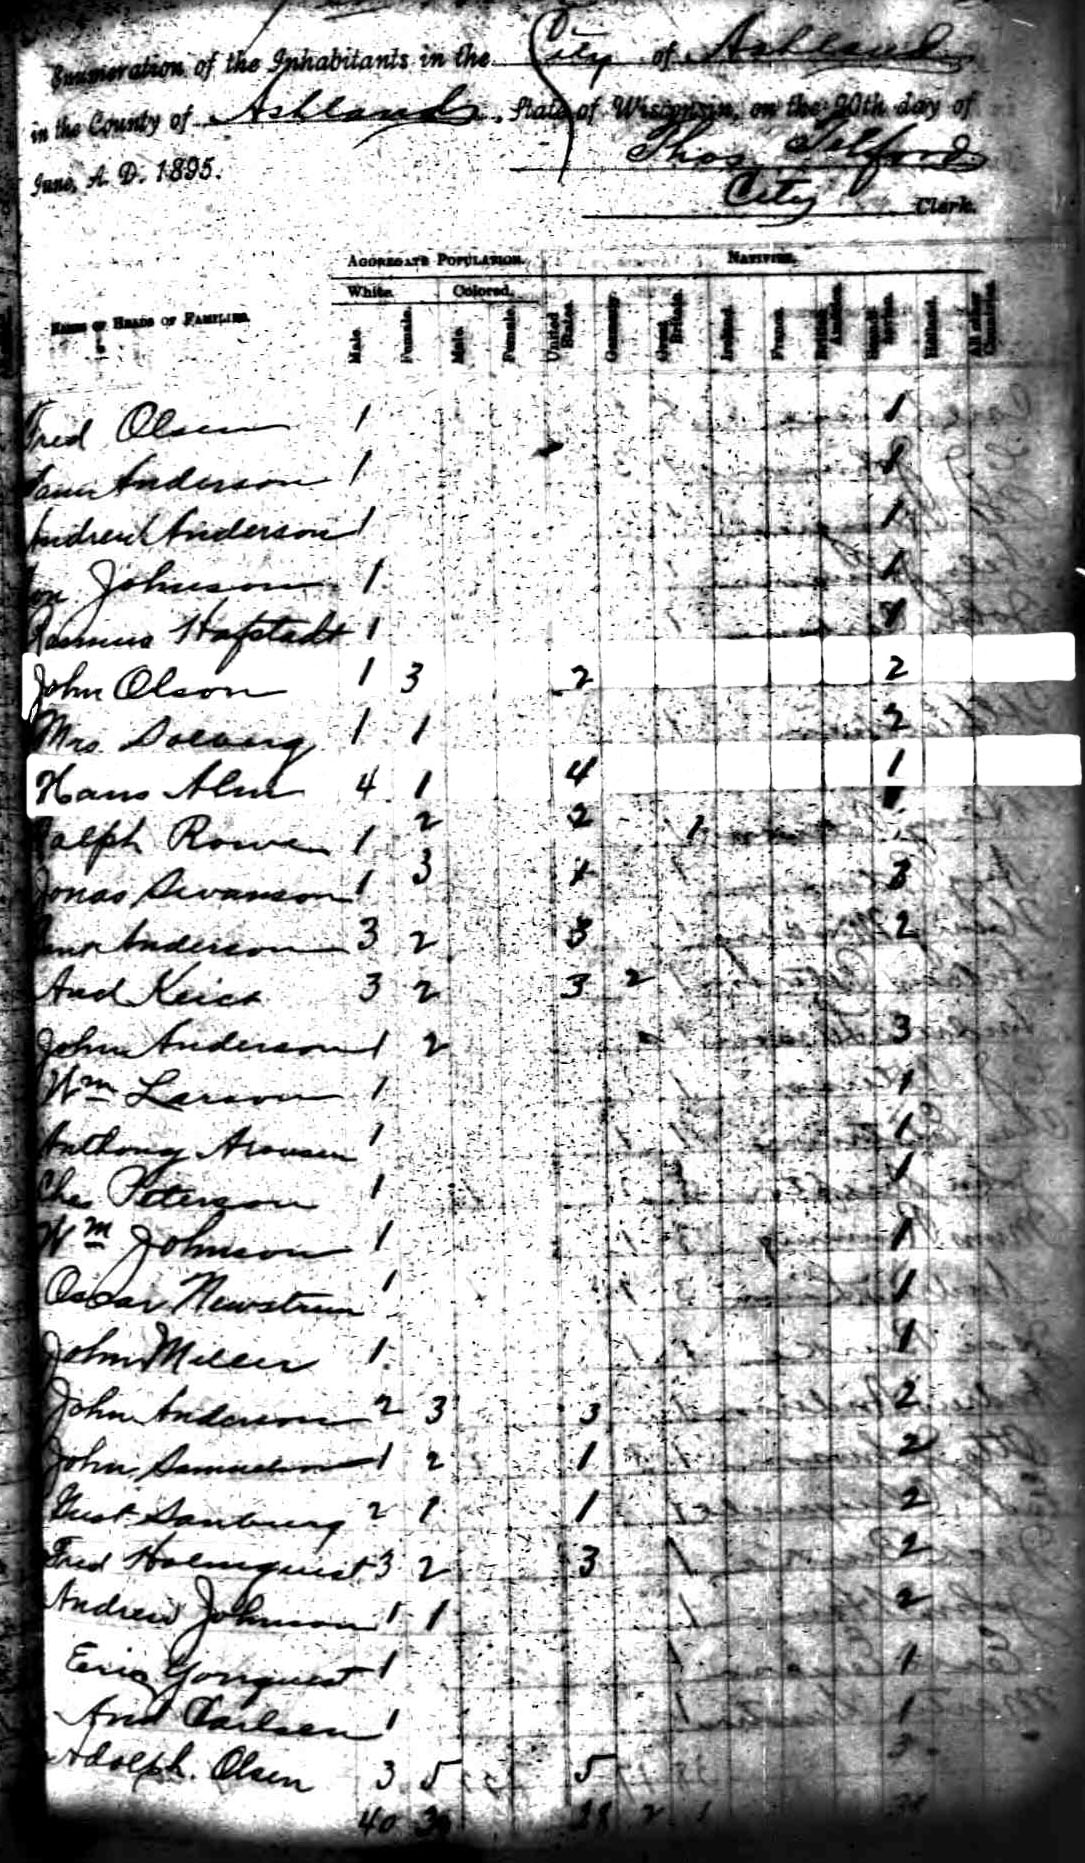 Enumeration of the Inhabitants in the City of Ashland
in the County of Ashland, State of Wisconsin, on the 20th day of
June, A. D. 1895.
Thos Telford
City Clerk.
AGGREGATE POPULATION. NATIVITY.
White. Colored.
NAMES OF HEADS OF FAMILIES. Male. Female. Male. Female. United States. Germany. Great Britain. Ireland. France. British America. Scandinavia. Holland. All other Countries.
Fred Olsen 1 1
Anderson 1 1
Andrew Anderson 1 1
Johnson 1 1
Rasmus Hafstadt 1 1
John Olson 1 3 2 2
Mrs. Solberg 1 1 2
Hans Alm 4 1 4 1
Ralph Rowe 1 2 2 1
Jonas Swanson 1 3 1 3
Anderson 3 2 3 2
And 3 2 3 2
John Anderson 1 2 3
Wm Larson 1 1
Anthony Aronsen 1 1
Chas Peterson 1 1
Wm Johnson 1 1
Oscar Newstrum 1 1
John Miller 1 1
John Anderson 2 3 3 2
John Samuelson 1 2 1 2
Gust Sanburg 2 1 1 2
Fred Holmquist 3 2 3 2
Andrew Johnson 1 1 2
Eric Yonquest 1 1
And Carlsen 1 1
Adolph. Olsen 3 5 5 3
40 28 2 1